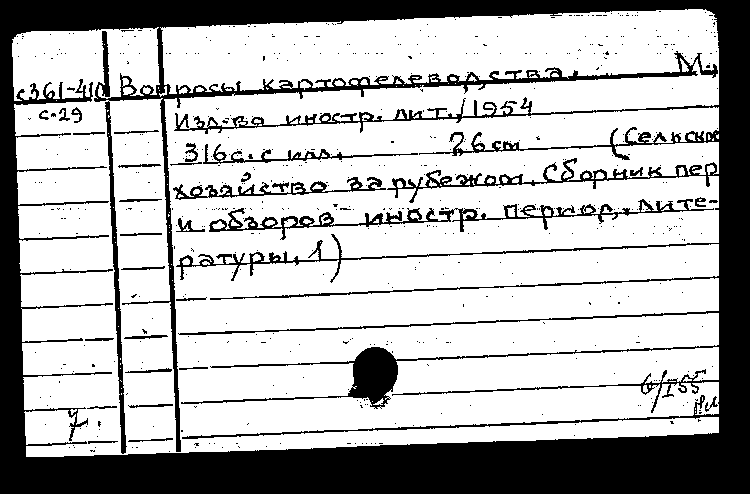 с361-410 Вопросы картофелеводства. М.,
с-29
Изд-во иностр. лит., 1954
316с. с илл. 26 см (Сельское
хозяйство за рубежом. Сборник пер
и обзоров иностр. период. лите-
ратуры. 1)
6/I 55
7.